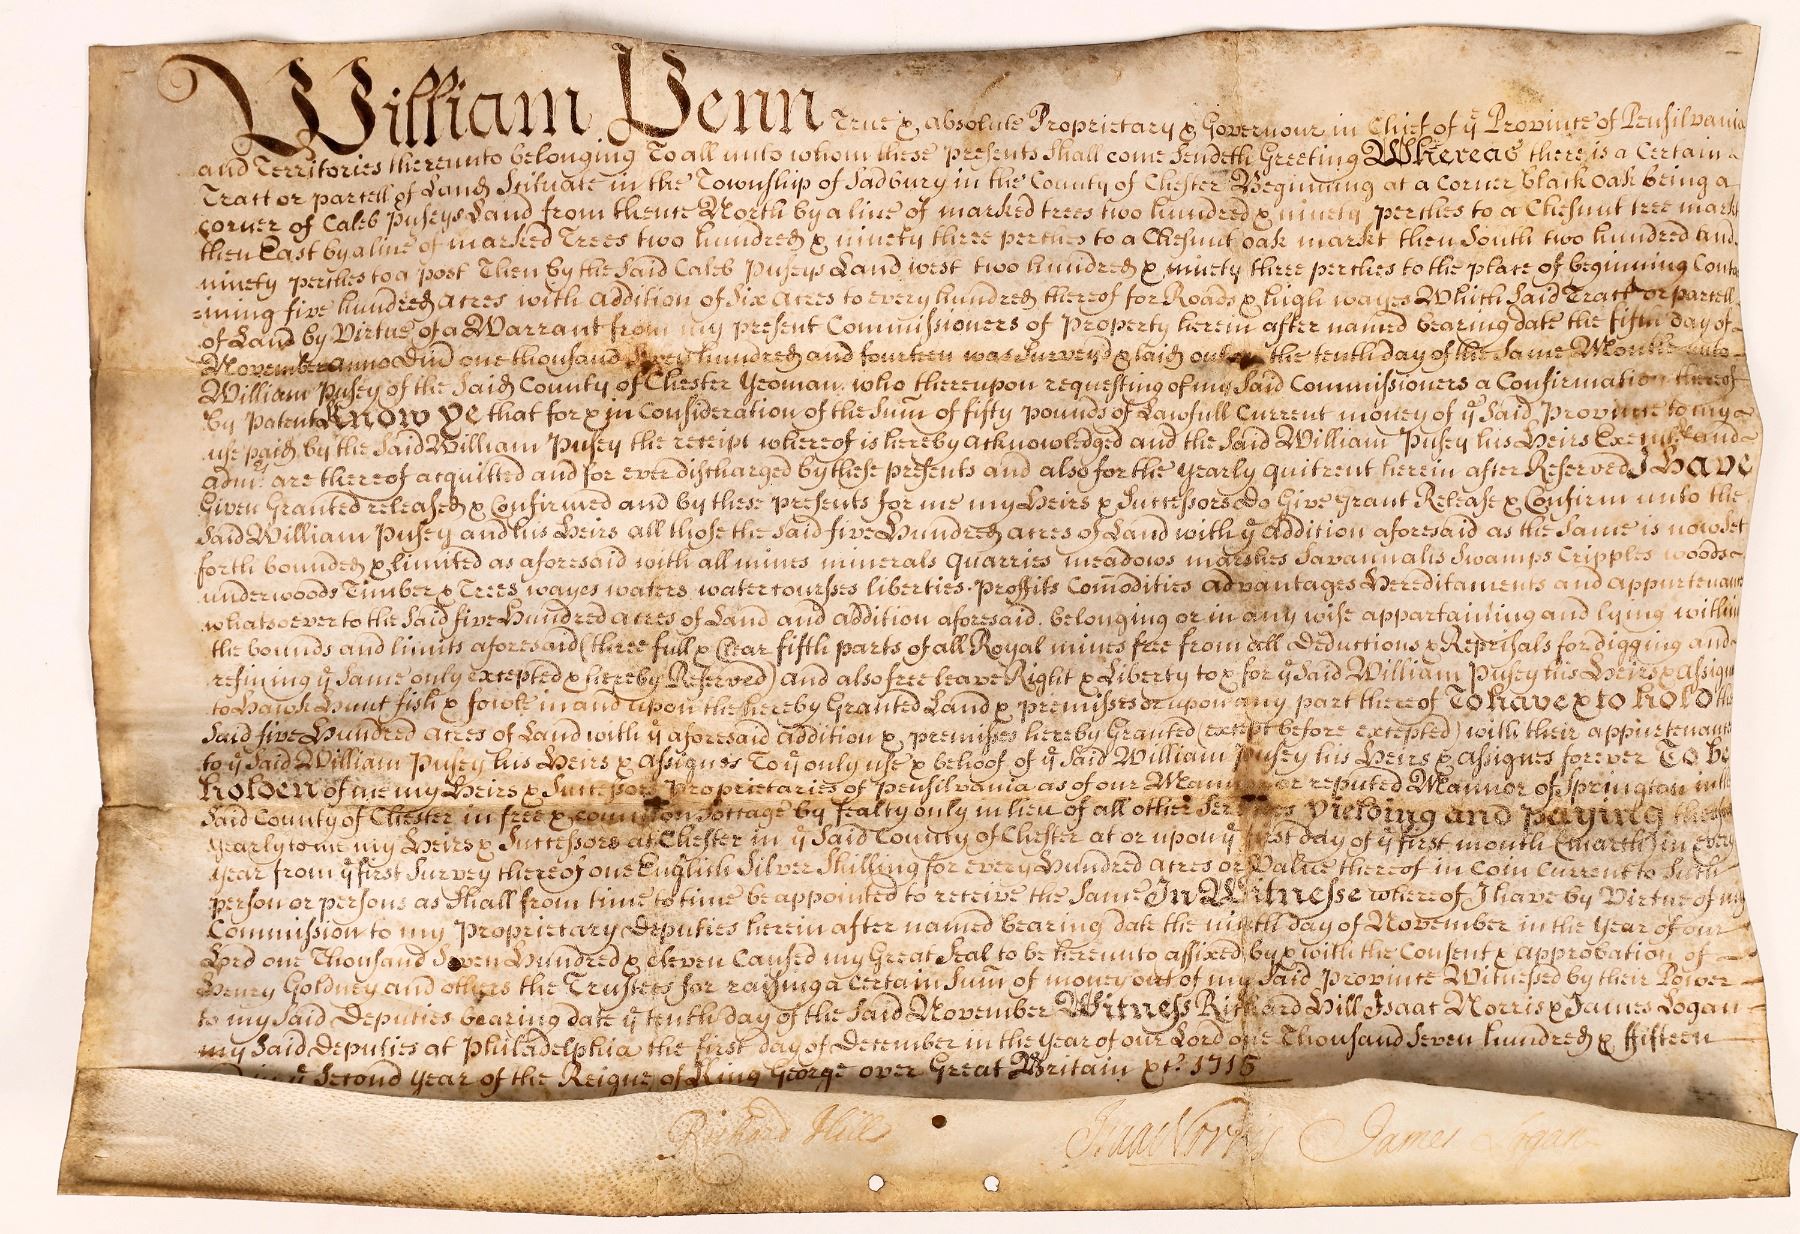 William Penn True & absolute Proprietary & Governour in Chief of yͤ Province of Pensilvania
and Territories thereunto belonging To all unto whom these presents shall come Sendeth Greeting Whereas there is a Certain
Tract or parcell of Land Scituate in the Township of Sadbury in the County of Chester Beginning at a Corner black oak being a
corner of Caleb Puseys Land from thence North by a line of marked trees two hundred & ninety perches to a Chesnut tree markt
then East by a line of marked Trees two hundred & ninety three perches to a Chesnut oak markt then South two hundred and
ninety perches to a post Then by the Said Caleb Puseys Land west two hundred & ninety three perches to the place of beginning Conta
ining five hundred acres with addition of Six Acres to every hundred thereof for Roads & high wayes Which Said Tract or parcell
of Land by Virtue of a Warrant from my present Commissioners of Property herein after named bearing date the fifth day of
November anno Dm̄ one thousand Seven hundred and fourteen was Surveyd & laid out the tenth day of the Same Month unto
William Pusey of the Said County of Chester Yeoman who thereupon requesting of my Said Commissioners a Confirmation thereof
by Patent Know Ye that for & in Consideration of the Sum̄ of fifty pounds of Lawfull Current money of yͤ Said Province to my
use paid by the Said William Pusey the receipt whereof is hereby acknowledged and the Said William Pusey his Heirs Execut.ͬˢ and
admͬˢ are thereof acquitted and for ever discharged by these presents and also for the yearly quitrent herein after Reserved I Have
Given Granted released & Confirmed and by these presents for me my Heirs & Successors Do Give Grant Release & Confirm unto the
Said William Pusey and his Heirs all those the Said five Hundred acres of Land with yͤ addition aforesaid as the Same is now Set
forth bounded & limited as aforesaid with all mines minerals Quarries meadows marshes Savannahs Swamps Cripples woods
underwoods Timber & Trees wayes waters watercourses liberties proffits Com̄odities advantages Hereditaments and appurtenances
whatsoever to the Said five Hundred acres of Land and addition aforesaid belonging or in any wise appartaining and lying within
the bounds and limits aforesaid (three full & Clear fifth parts of all Royal mines free from all Deductions & Reprisals for digging and
refining yͤ Same only excepted & hereby Reserved) and also free leave Right & Liberty to & for yͤ Said William Pusey his Heirs & assigns
to Hawk Hunt fish & fowle in and upon the hereby Granted Land & premisses or upon any part thereof To have & to hold the
Said five Hundred acres of Land with yͤ aforesaid addition & premisses hereby Granted (except before excepted) with their appurtenances
to yͤ Said William Pusey his Heirs & assignes To yͤ only use & behoof of yͤ Said William Pusey his Heirs & assignes forever To be
holden of me my Heirs & Successors Proprietaries of Pensilvania as of our Mannor or reputed Mannor of Springton in the
Said County of Chester in free & common Soccage by fealty only in lieu of all other Services Yielding and paying therefore
yearly to me my Heirs & Successors at Chester in yͤ Said County of Chester at or upon yͤ first day of yͤ first month (march) in every
year from yͤ first Survey thereof one English Silver Shilling for every Hundred acres or Value thereof in Coin Current to Such
person or persons as Shall from time to time be appointed to receive the Same In Witnesse whereof I have by Virtue of my
Commission to my Proprietary Deputies herein after named bearing date the ninth day of November in the Year of our
Lord one Thousand Seven Hundred & eleven Caused my Great Seal to be hereunto affixed by & with the Consent & approbation of
Henry Goldney and others the Trustees for raising a Certain Sum̄ of money out of my Said Province Witnessed by their Power
to my Said Deputies bearing date yͤ tenth day of the Said November Witness Richard Hill Isaac Norris & James Logan
my Said Deputies at Philadelphia the first day of December in the Year of our Lord one Thousand Seven hundred & fifteen
yͤ Second Year of the Reigne of King George over Great Britain &c. 1715
Richard Hill Isaac Norris James Logan